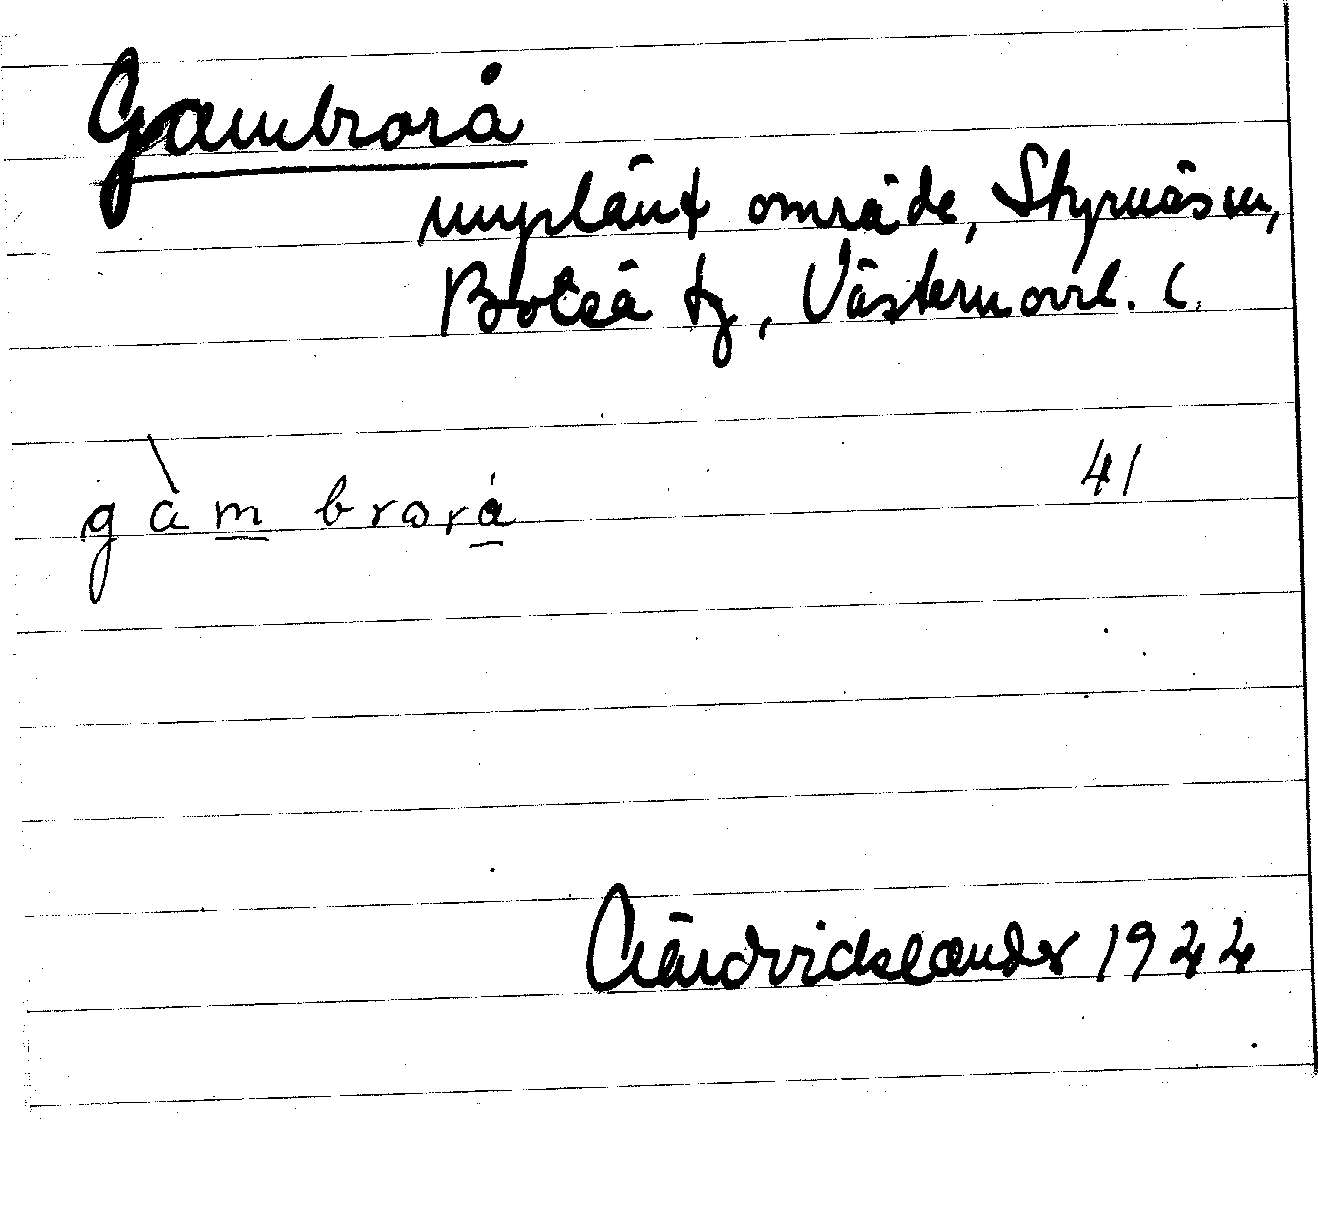 Gambrorå
myrlänt område, Styrnäs sn,
Boteå tg, Västernorrl. l.
gàm brorá 41
Lidvicslander 1944